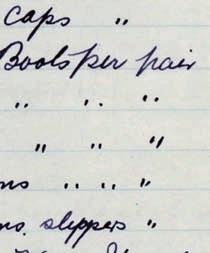 caps "
Boots per pair
" " "
" " "
ns " " "
ns. slippers "